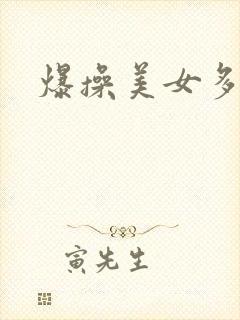 爆操美女多
寅先生